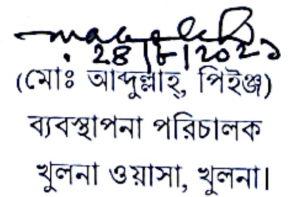 28/8/2023
(মোঃ আব্দুল্লাহ্, পিইঞ্জ)
ব্যবস্থাপনা পরিচালক
খুলনা ওয়াসা, খুলনা।